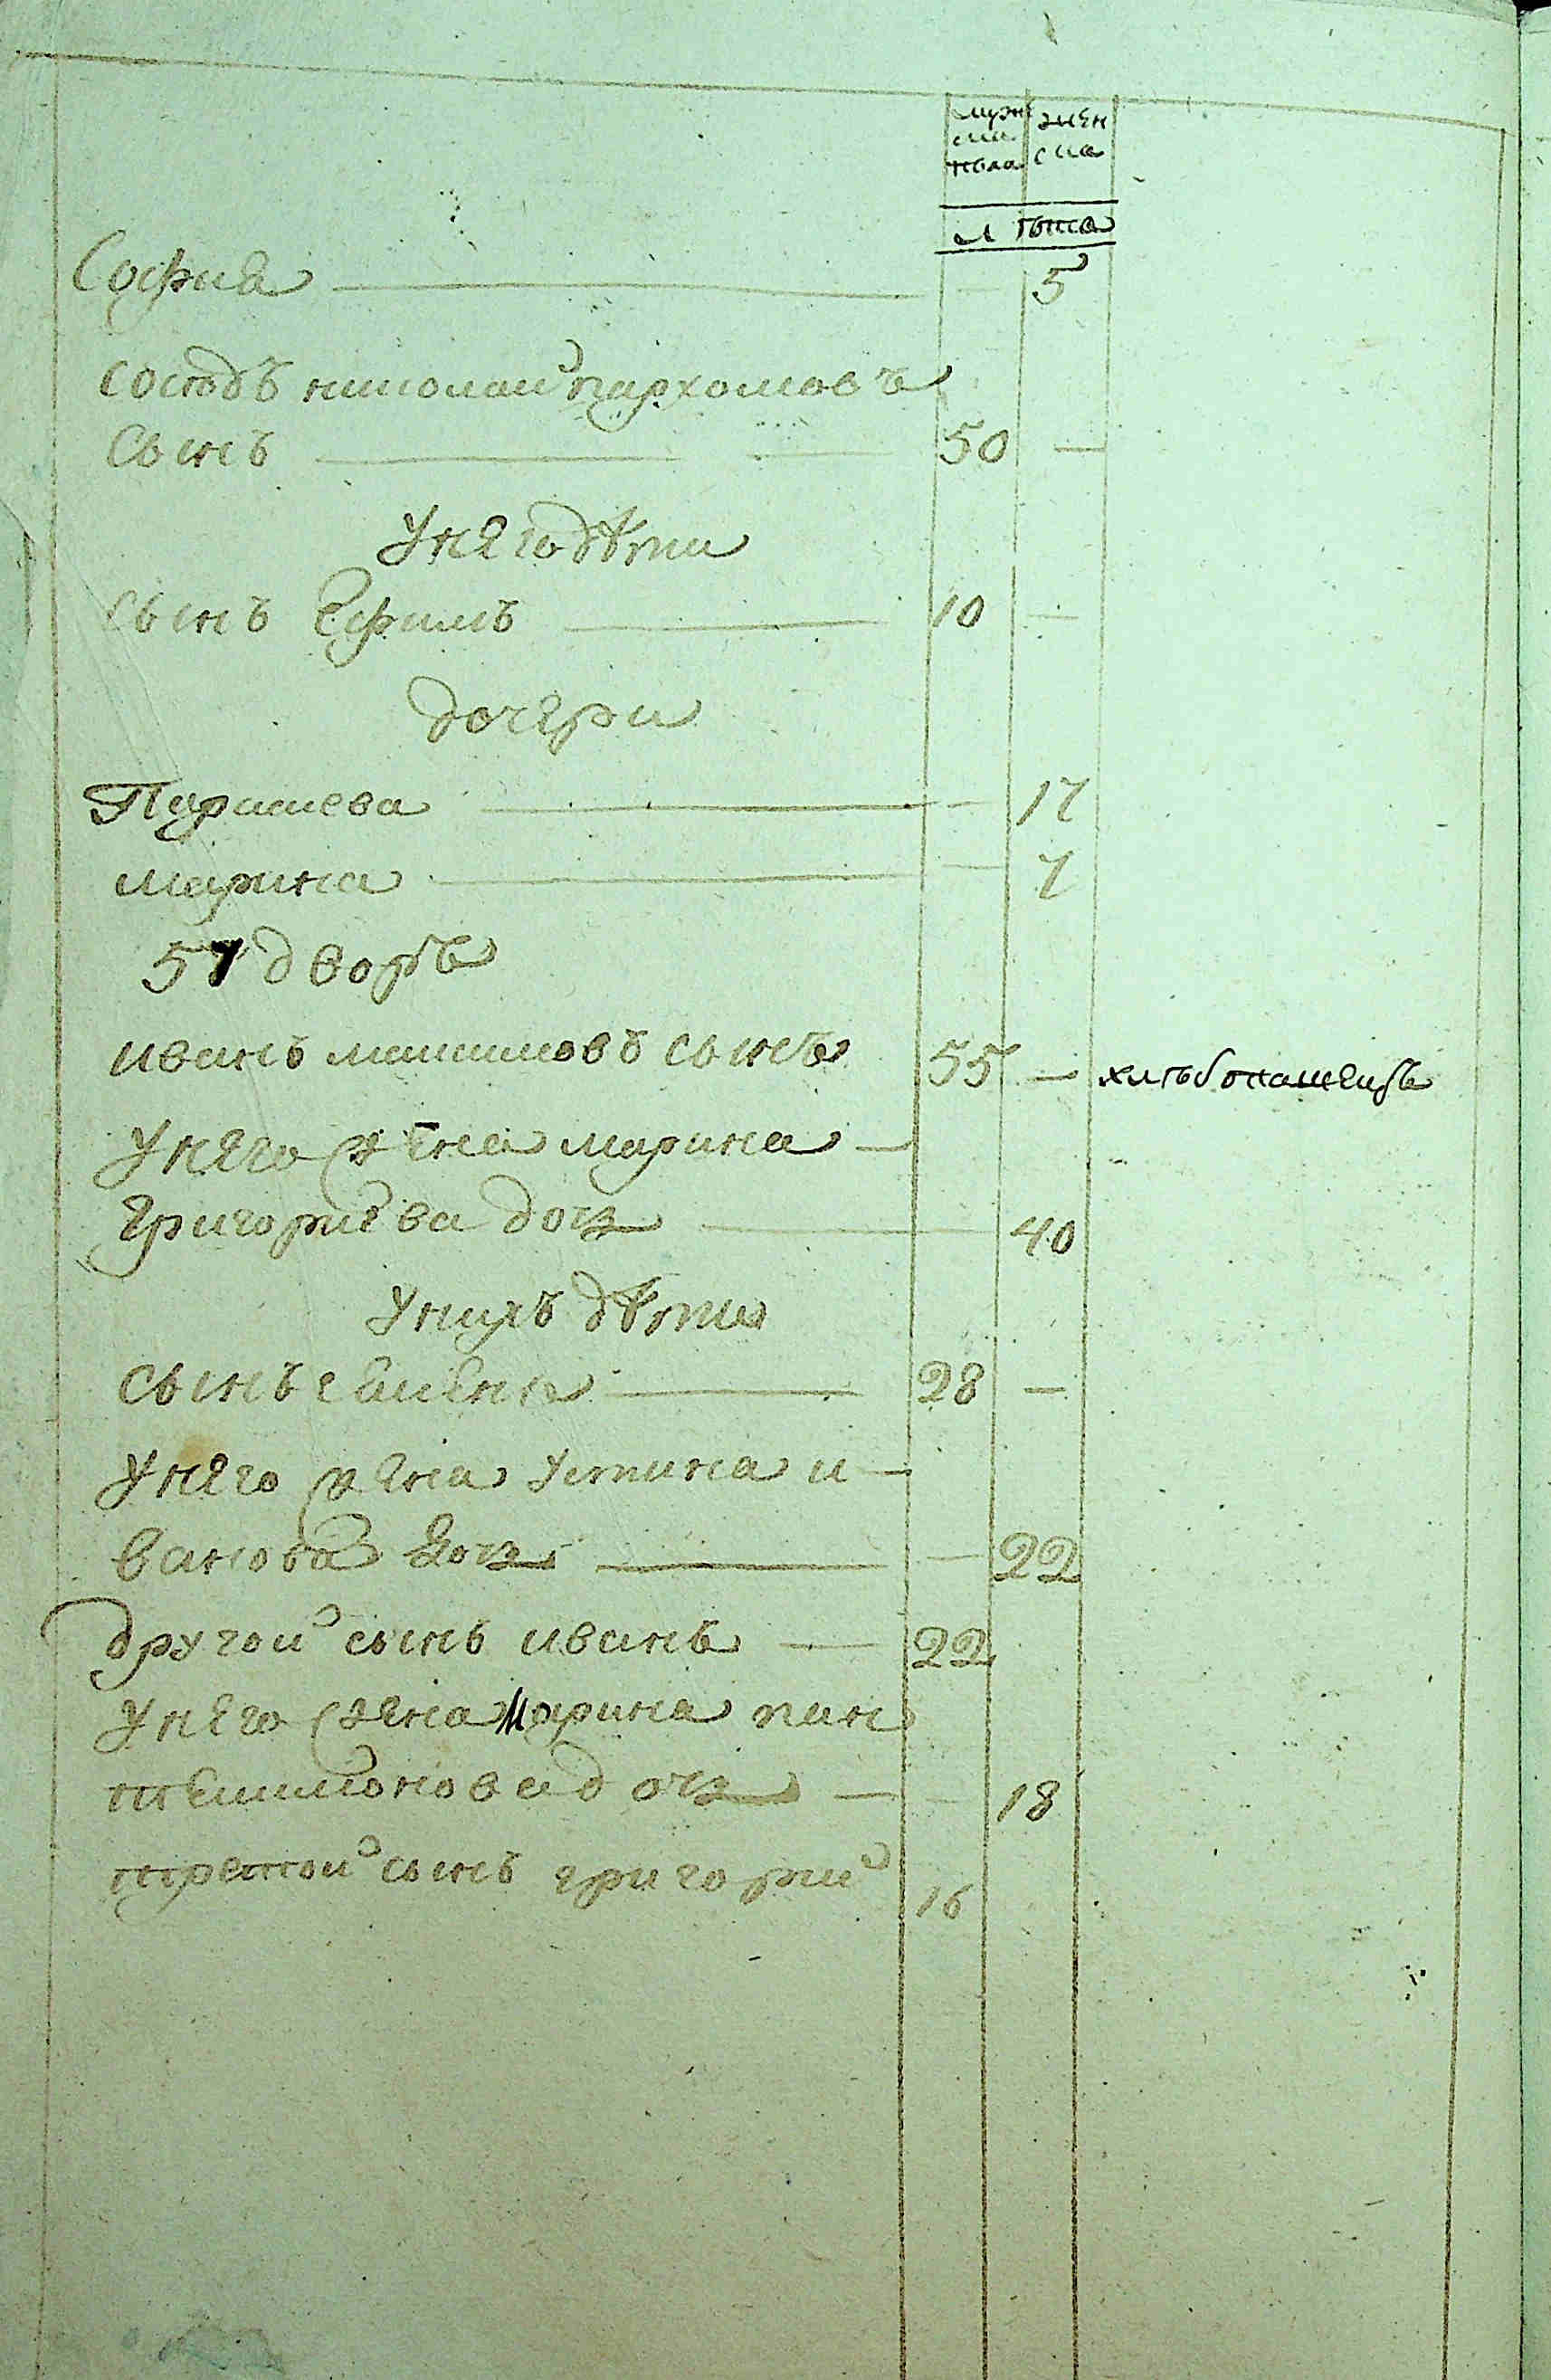 муж жен
ска ска
пола
лѣта
София — 5
сосѣдъ николай пархомовъ
сынъ — 50 —
У него дѣти
сынъ Ефимъ — 10 —
дочери
Парасцева — 17
марина — 7
57 дворъ
иванъ максимовъ сынъ 55 — хлѣбопашецъ
У него жена марина —
григориева дочь — 40
У нихъ дѣти
сынъ семенъ — 28 —
У него жена устина и—
ванова дочь — 22
другой сынъ иванъ — 22
У него жена Марина пан
телимонова дочь — 18
третой сынъ григорий 16